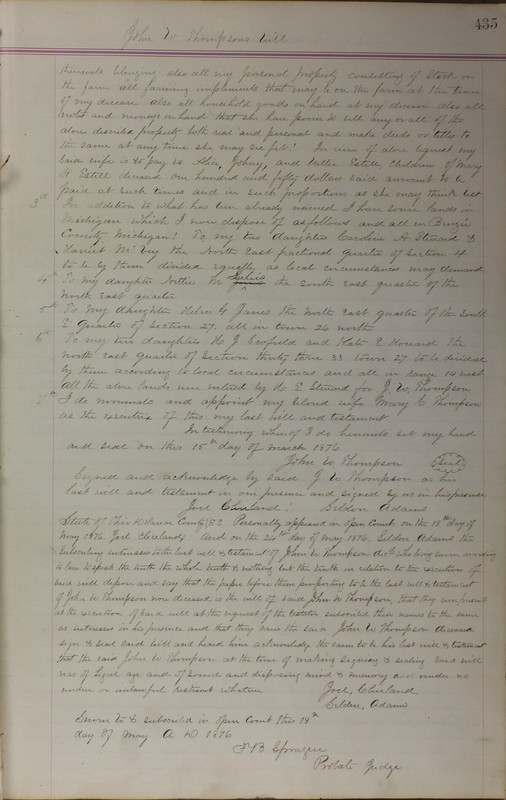 435
John W Thompsons Will
thereunto belonging also all my personal property consisting of Stock on
the farm all farming implements that may be on the farm at the time
of my decease also all household goods on hand at my decease also all
notes and moneys on hand that she have power to sell any or all of the
above described property both real and personal and make deeds or titles to
the same at any time she may see fit! In view of above bequest my
said wife is to pay to John, and Estell, Children of Mary
Estell deceased one hundred and fifty dollars said amount to be
paid at such times and in such proportions as she may think best
3rd In addition to what has been already named I have some lands in
Michigan which I now dispose of as follows and all in Benzie
County Michigan! To my two daughters Caroline A. Steward &
Harriet the North East fractional quarter of Section 4
to be by them divided equally as local circumstances may demand
4th To my daughter Nettie M the South East quarter of the
north East quarter
5th To my daughter Helen G James the north East quarter of the South
E Quarter of Section 27. all in town 26 north
6th To my two daughters H J Scofield and Kate E Howard the
north East quarter of Section thirty three 33 town 27 to be divided
by them according to local circumstances and all in range 14 west
All the above lands were entered by H E Steward for J. W. Thompson
7th I do nominate and appoint my beloved wife Mary C Thompson
as the executrix of this my last will and testament
In testimony whereof I do hereunto set my hand
and seal on this 15th day of March 1876
John W Thompson Seal
Signed and acknowledge by said J W Thompson as his
last will and testament in our presence and signed by us in his presence
Joel Cleveland! Seldon Adams
State of Ohio Delaware County SS. Personally appeared in open Court on the 18th day of
May 1876. Joel Cleveland & And on the 24th day of May 1876. Seldon Adams the
subscribing witnesses to the last will & testament of John W Thompson Decd who being sworn according
to law to speak the truth the whole truth & nothing but the truth in relation to the execution of
said will depose and say that the paper before them purporting to be the last will & testament
of John W Thompson now deceased is the will of said John W Thompson, that they were present
at the execution of said will at the request of the testator subscribed their names to the same
as witnesses in his presence and that they saw the said John W Thompson deceased
sign & seal said will and heard him acknowledge the same to be his last will & testament
that the said John W Thompson at the time of making signing & sealing said will
was of legal age and of sound and disposing mind & memory and under no
undue or unlawful restraint whatever Joel, Cleveland
Seldon, Adams
Sworn to & subscribed in open Court this 18th
day of May A D 1876
F B Sprague
Probate Judge